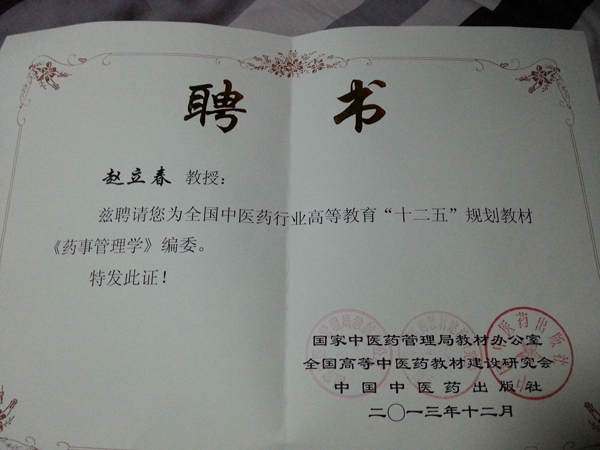 聘 书
赵立春 教授：
兹聘请您为全国中医药行业高等教育“十二五”规划教材
《药事管理学》编委。
特发此证！
国家中医药管理局教材办公室
全国高等中医药教材建设研究会
中国中医药出版社
二〇一三年十二月